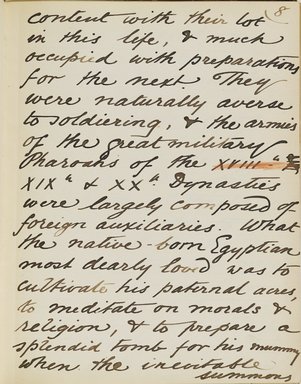 8
content with their lot
in this life, & much
occupied with preparations
for the next. They
were naturally averse
to soldiering, & the armies
of the great military
Pharoahs of the XVIII" &
XIX" & XX" Dynasties
were largely composed of
foreign auxiliaries. What
the native-born Egyptian
most dearly loved was to
cultivate his paternal acres,
to meditate on morals &
religion, & to prepare a
splendid tomb for his mummy
when the inevitable
summons